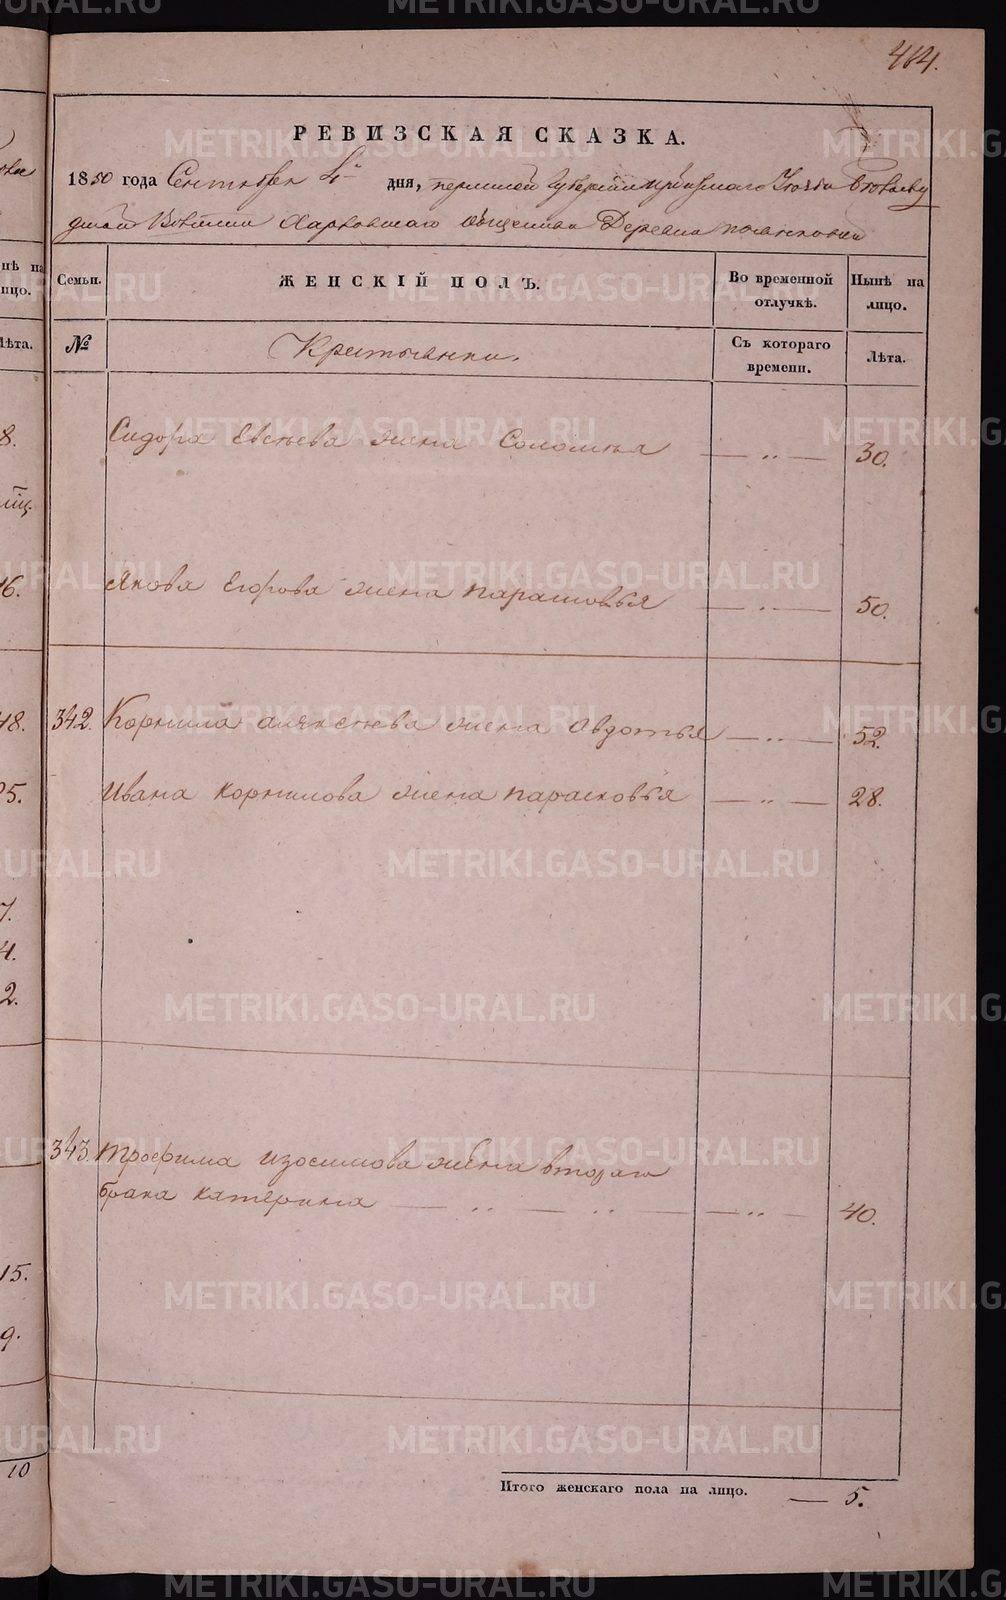 414.
РЕВИЗСКАЯ СКАЗКА.
1850 года Сентября 4 дня, пермской Губернии Ирбитскаго Уезда
волости Харловскаго общества Деревни
Семьи. ЖЕНСКІЙ ПОЛЪ. Во временной отлучкѣ. Нынѣ на лицо.
№ Крестьянки. Съ котораго времени. Лѣта.
Сидора Евсеева жена Соломея — „ — 30.
Якова Егорова жена парасковья — „ — 50.
342. Корнила алексеева жена Авдотья — „ — 52.
Ивана корнилова жена парасковья — „ — 28.
343. трофима изосимова жена втораго
брака катерина — „ — „ — — „ — 40.
Итого женскаго пола на лицо. — 5.
8.
16.
48.
25.
7.
4.
2.
15.
9.
10
METRIKI.GASO-URAL.RU